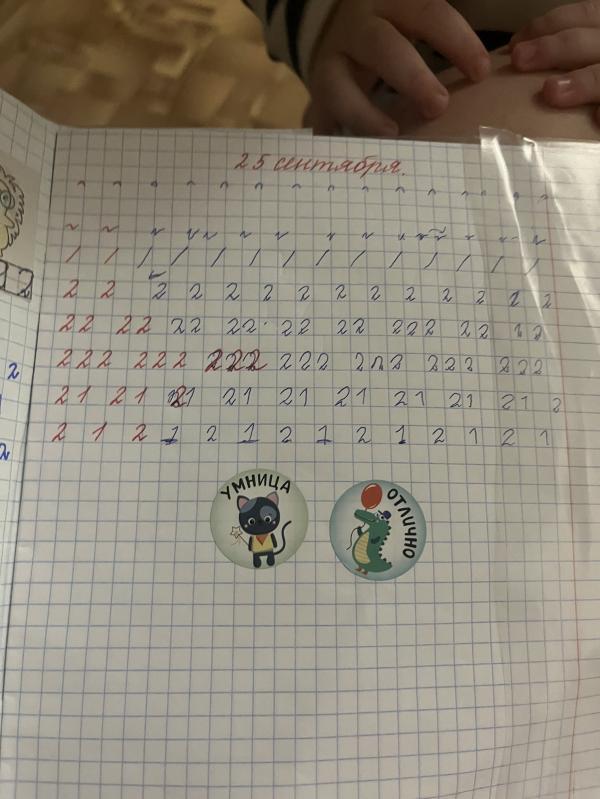 25 сентября.
2 2 2 2 2 2 2 2 2 2 2 2 2 2
22 22 22 22 22 22 222 22 22
222 222 222 222 222 222 222
21 21 21 21 21 21 21 21 21 2
2 1 2 1 2 1 2 1 2 1 2 1 2 1
УМНИЦА
ОТЛИЧНО
22
2
2